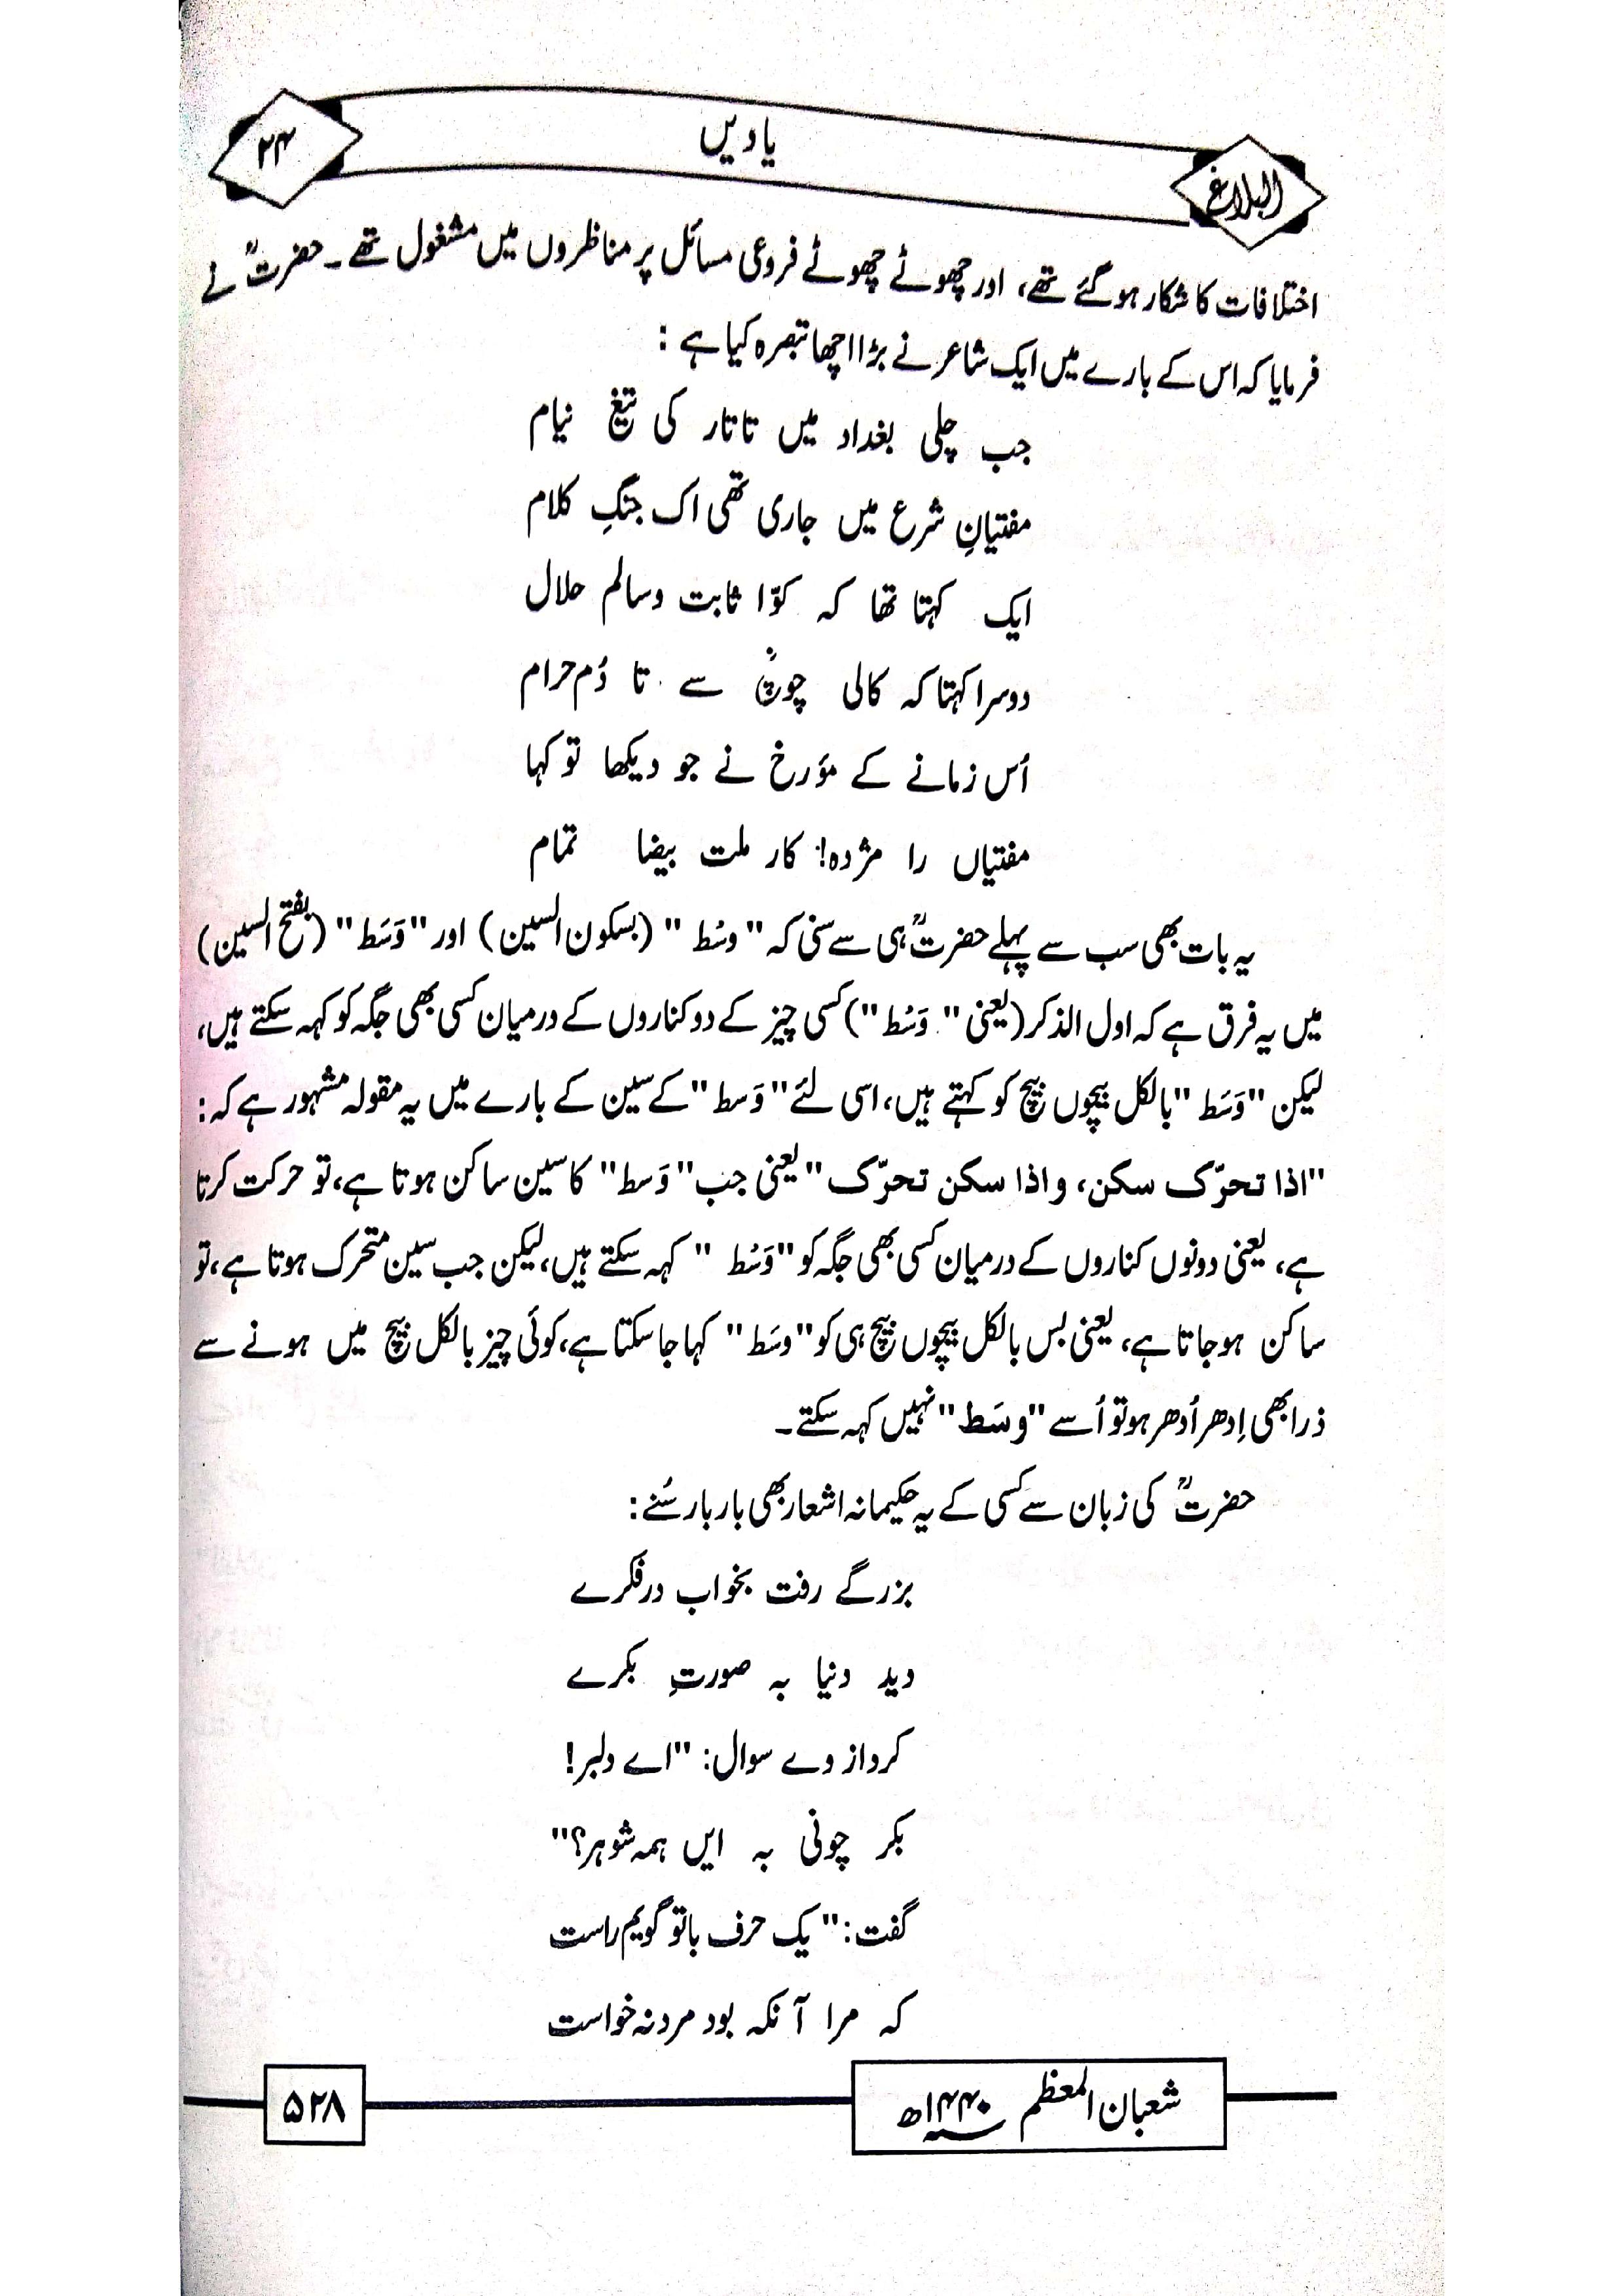 البلاغ
یادیں
۲۴
اختلافات کا شکار ہو گئے تھے، اور چھوٹے چھوٹے فروعی مسائل پر مناظروں میں مشغول تھے۔ حضرتؒ نے
فرمایا کہ اس کے بارے میں ایک شاعر نے بڑا اچھا تبصرہ کیا ہے :
جب چلی بغداد میں تاتار کی تیغ نیام
مفتیانِ شرع میں جاری تھی اک جنگِ کلام
ایک کہتا تھا کہ کوّا ثابت وسالم حلال
دوسرا کہتا کہ کالی چونچ سے تا دُم حرام
اُس زمانے کے مؤرخ نے جو دیکھا تو کہا
مفتیاں را مژدہ! کار ملت بیضا تمام
یہ بات بھی سب سے پہلے حضرتؒ ہی سے سنی کہ "وسْط" (بسکون السین) اور "وَسَط" (بفتح السین)
میں یہ فرق ہے کہ اول الذکر (یعنی "وَسْط") کسی چیز کے دو کناروں کے درمیان کسی بھی جگہ کو کہہ سکتے ہیں،
لیکن "وَسَط" بالکل بیچوں بیچ کو کہتے ہیں، اسی لئے "وَسط" کے سین کے بارے میں یہ مقولہ مشہور ہے کہ:
"اذا تحرّک سکن، و اذا سکن تحرّک" یعنی جب "وَسط" کا سین ساکن ہوتا ہے، تو حرکت کرتا
ہے، یعنی دونوں کناروں کے درمیان کسی بھی جگہ کو "وَسْط" کہہ سکتے ہیں، لیکن جب سین متحرک ہوتا ہے، تو
ساکن ہو جاتا ہے، یعنی بس بالکل بیچوں بیچ ہی کو "وسَط" کہا جا سکتا ہے، کوئی چیز بالکل بیچ میں ہونے سے
ذرا بھی اِدھر اُدھر ہو تو اُسے "وسَط" نہیں کہہ سکتے۔
حضرتؒ کی زبان سے کسی کے یہ حکیمانہ اشعار بھی بار بار سُنے :
بزرگے رفت بخواب در فکرے
دید دنیا بہ صورتِ بکرے
کرد از وے سوال: "اے دلبر!
بکر چونی بہ ایں ہمہ شوہر؟"
گفت: "یک حرف با تو گویم راست
کہ مرا آنکہ بود مرد نہ خواست
شعبان المعظم ۱۴۴۰ھ
۵۲۸